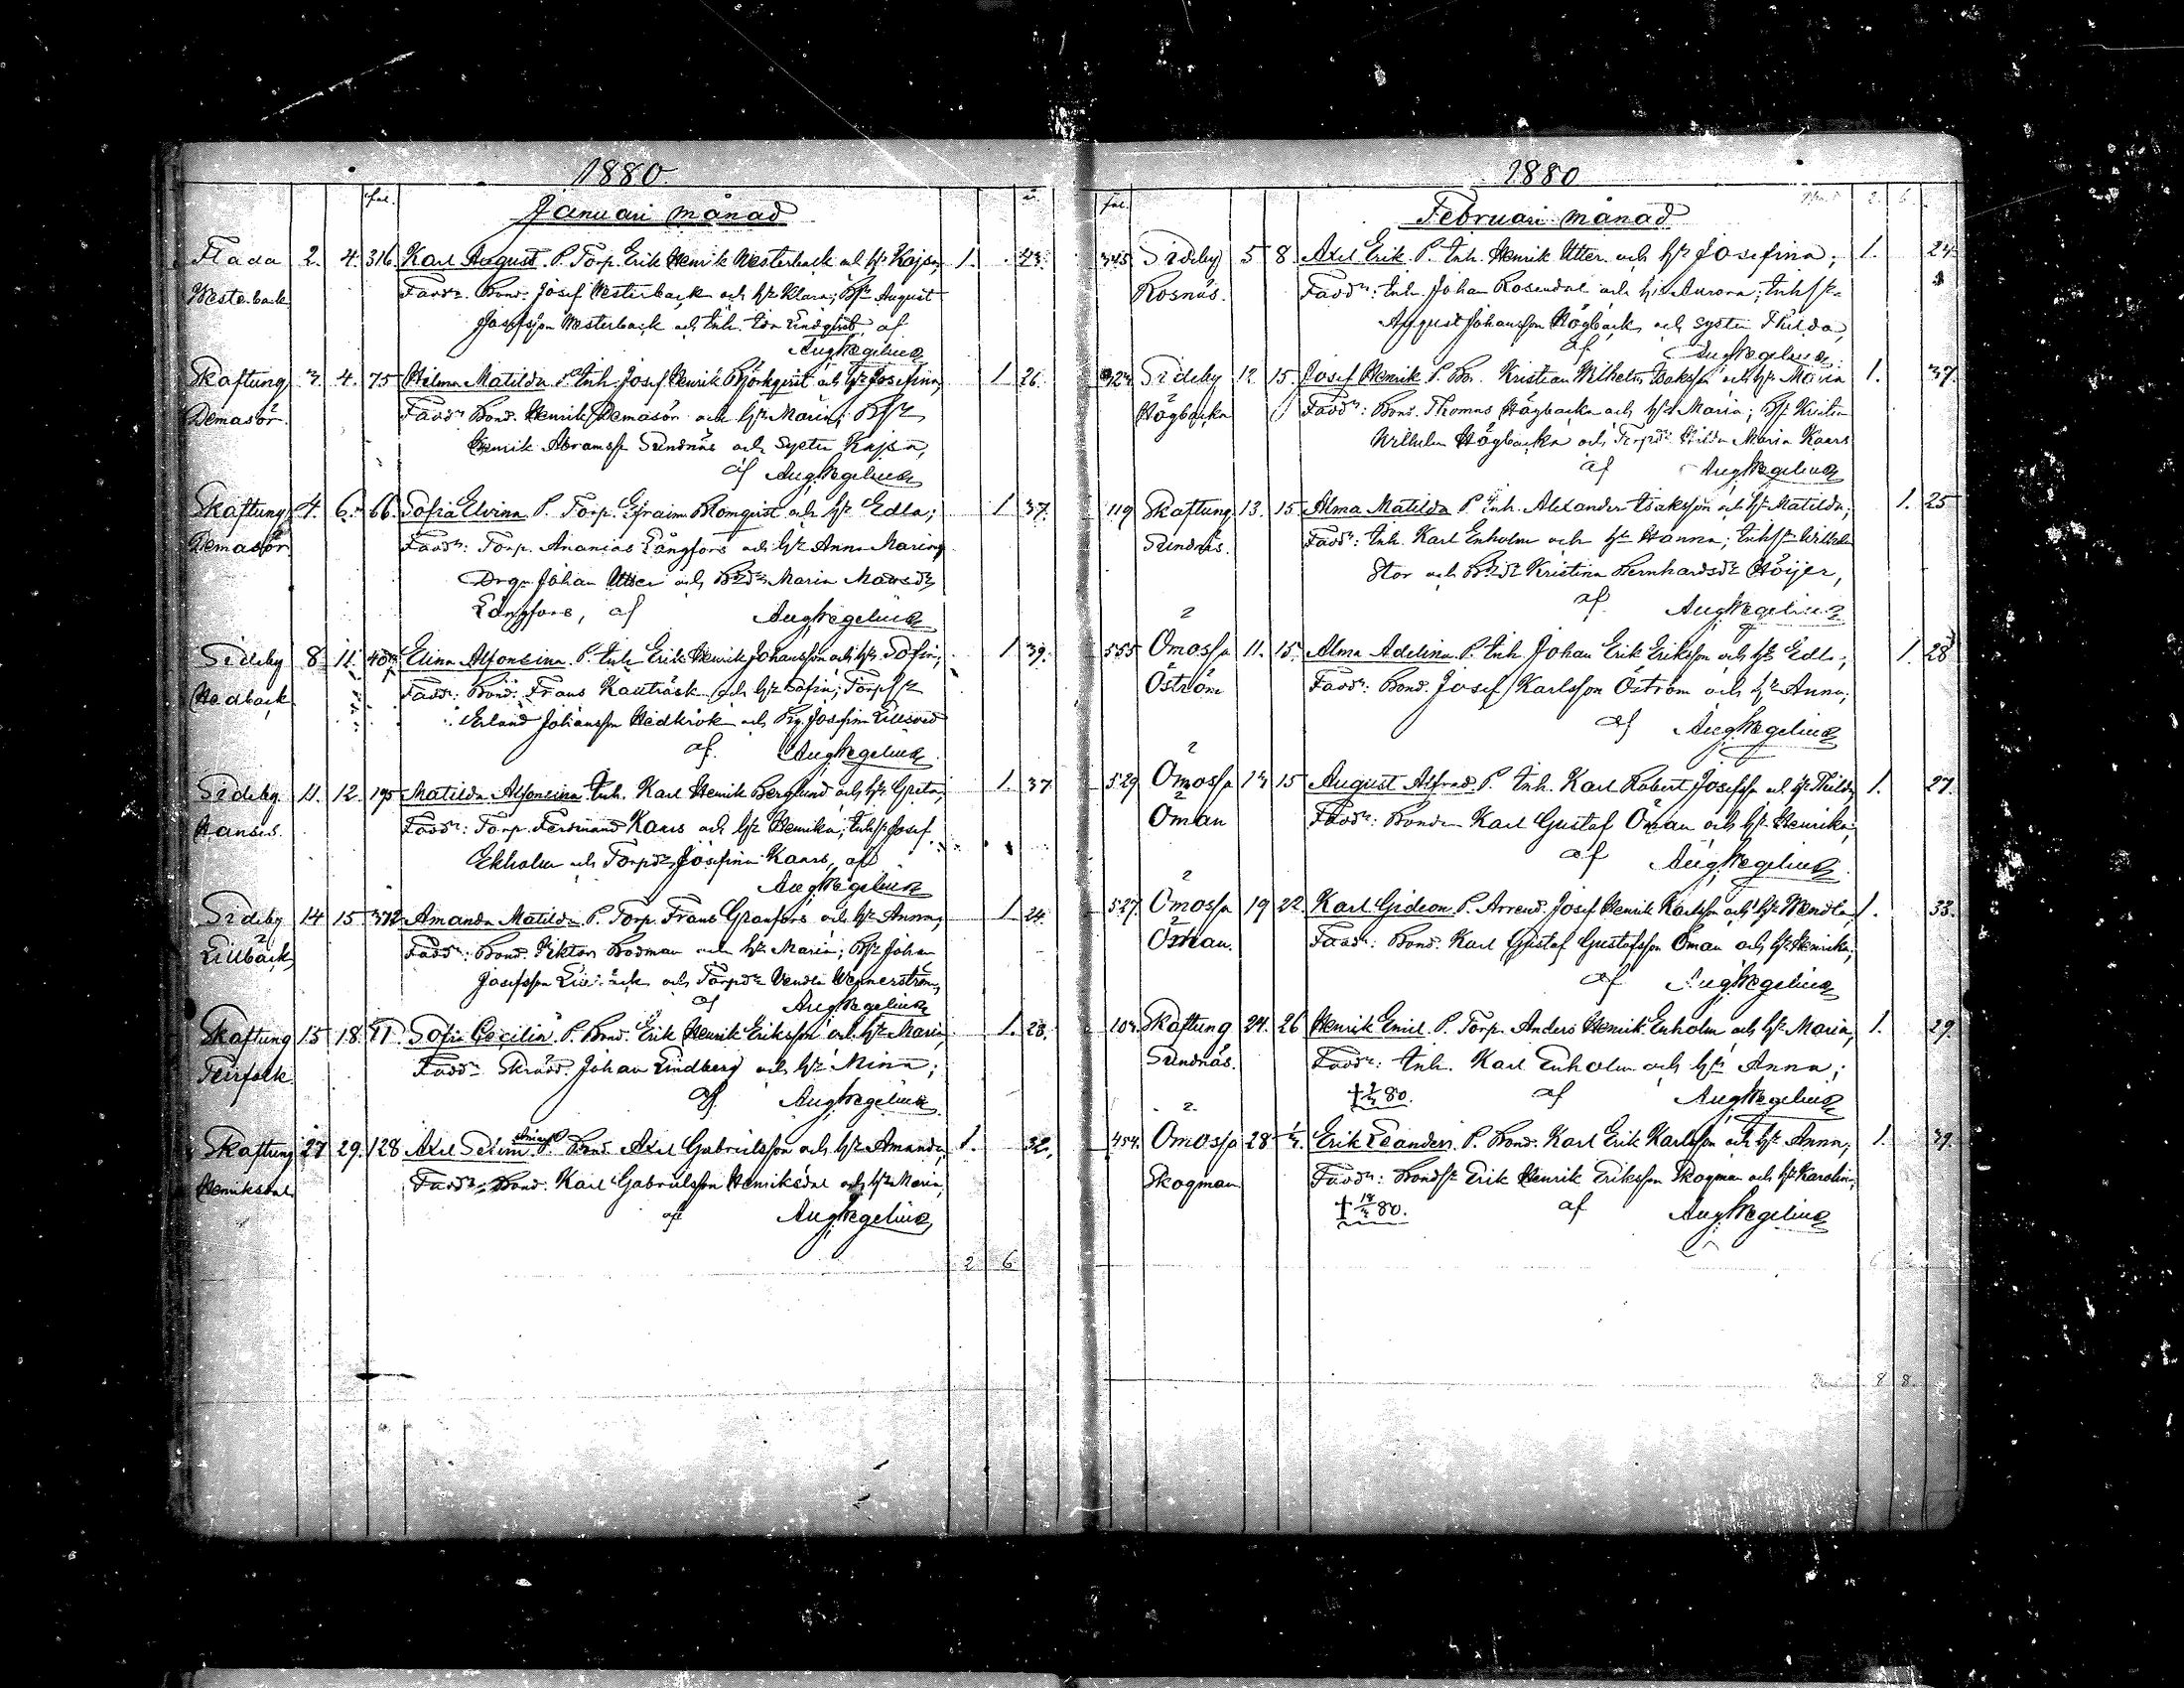 1880.
fol.
Januari månad
Flada 2. 4. 316. Karl August. P. Torp. Erik Henrik Westerback och h:u Kajsa, 1. 23.
Westerback Fadd:r. Bond. Josef Westerback och h:u Klara; Bs:n August
Josefsson Westerback och Inh. Eva Lindqvist, af
Aug. Wegelius
Skaftung 3. 4. 75 Hilma Matilda P. Inh. Josef Henrik Björkqvist och h:u Josefina, 1 26.
Demasör. Fadd:r Bond. Henrik Demasör och h:u Maria; Bs:n
Henrik Abramss:n Sundnäs och Syster Kajsa,
af Aug. Wegelius
Skaftung 4. 6. 66. Sofia Elvina P. Torp. Efraim Blomqvist och h:u Edla; 1 37.
Demasör Fadd:r: Torp. Ananias Långfors och h:u Anna Maria;
Drg. Johan Utter och Maria
Långfors, af Aug. Wegelius
Sideby 8 11. Elina Alfonsina P. Inh. Erik Henrik Johansson och h:u Sofia; 1 39.
Hedback Fadd:r: Bond. Frans Kauträsk och h:u Sofia; Torps:n
Erland Johansson Hedkrok och Josefina
af. Aug. Wegelius
Sideby 11. 12. 195 Matilda Alfonsina Inh. Karl Henrik Berglund och h:u Greta, 1 37
Hanses. Fadd:r: Torp. Ferdinand Kaars och h:u Henrika; Inhs:n Josef
Ekholm och Torpd:r Josefina Kaars, af
Aug. Wegelius
Sideby 14 15 372 Amanda Matilda P. Torp. Frans Granfors och h:u Anna; 1 24.
Lillbäck Fadd:r: Bond. Viktor Bodman och h:u Maria; Bs:n Johan
Josefsson och Torpd:r Vendla Wennerström,
af Aug. Wegelius
Skaftung 15 18. 91. Sofia Cecilia P. Bond. Erik Henrik Eriksson och h:u Maria 1. 28.
Teirfolk Fadd:r Skrädd. Johan Lindberg och h:u Mina;
af Aug. Wegelius
Skaftung 27 29. 128 Axel Selim P. Bond. Axel Gabrielsson och h:u Amanda, 1. 32.
Henriksdal Fadd:r Bond. Karl Gabrielsson Henriksdal och h:u Maria,
af Aug. Wegelius
2 6
1880
fol.
Februari månad
345 Sideby 5 8 Axel Erik. P. Inh. Henrik Utter och h:u Josefina; 1. 24.
Rosnäs. Fadd:r: Inh. Johan Rosendal och h:u Aurora; Inhs:n
August Johansson Högback och syster Thilda,
af Aug. Wegelius
Sideby 12 15. Josef Henrik P. Bs. Kristian Wilhelm Isaksson och h:u Maria 1. 37.
Högbacka Fadd:r: Bond. Thomas Högbacka och h:u Maria; Bs:n Kristian
Wilhelm Högbacka och Torpd:r Hilda Maria Kaars
af Aug. Wegelius
119 Skaftung 13. 15 Alma Matilda P Inh. Alexander Isaksson och h:u Matilda; 1. 25
Sundnäs. Fadd:r: Inh. Karl Enholm och h:u Hanna; Inhs:n Wilhelm
Stor och Bd:r Kristina Bernhardsd:r Höijer,
af Aug. Wegelius
555 Ömossa 11. 15. Alma Adelina P. Inh Johan Erik Eriksson och h:u Edla; 1. 28
Öström Fadd:r: Bond. Josef Karlsson Öström och h:u Anna;
af Aug. Wegelius
529 Ömossa 13 15 August Alfred P. Inh. Karl Robert Josefsson och h:u Thilda 1. 27.
Öman Fadd:r: Bonden Karl Gustaf Öman och h:u Henrika;
af Aug. Wegelius
527. Ömossa 19 22 Karl Gideon P. Arrend. Josef Henrik Karlsson och h:u Wendla 1. 33.
Fadd:r: Bond. Karl Gustaf Gustafsson Öman och h:u Henrika;
af Aug. Wegelius
Skaftung 24. 26 Henrik Emil P. Torp. Anders Henrik Enholm och h:u Maria, 1. 29.
Sundnäs. Fadd:r: Inh. Karl Enholm och h:u Anna;
80. af Aug. Wegelius
454. Ömossa 28 Erik Leander. P. Bond. Karl Erik Karlsson och h:u Anna; 1. 39.
Skogman Fadd:r: Bonds:n Erik Henrik Eriksson Skogman och h:u Karolina,
80. af Aug. Wegelius
8 8